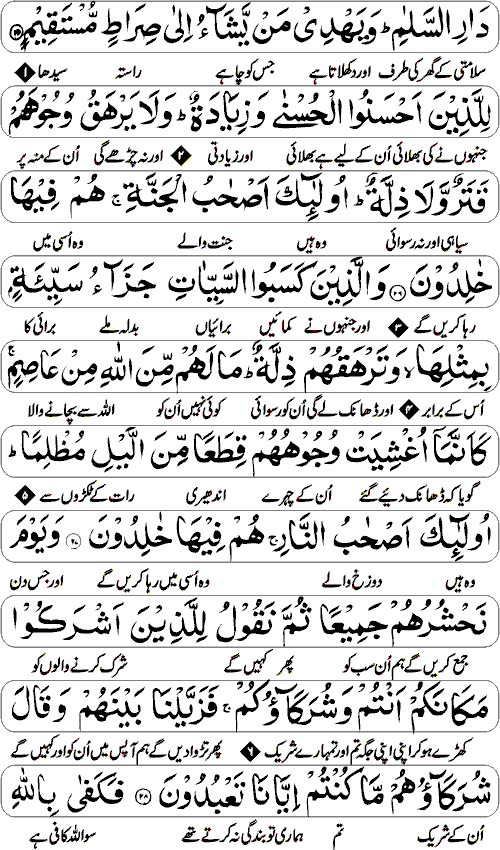 دَارِ السَّلٰمِ ؕ وَيَهْدِىْ مَنْ يَّشَآءُ اِلٰى صِرَاطٍ مُّسْتَقِيْمٍ ۝۲۵
سلامتی کے گھر کی طرف اور دکھلاتا ہے جس کو چاہے راستہ سیدھا ۱
لِلَّذِيْنَ اَحْسَنُوا الْحُسْنٰى وَزِيَادَةٌ ؕ وَلَا يَرْهَقُ وُجُوْهَهُمْ
جنہوں نے کی بھلائی اُن کے لیے ہے بھلائی اور زیادتی ۲ اور نہ چڑھے گی اُن کے منہ پر
قَتَرٌ وَّلَا ذِلَّةٌ ؕ اُولٰٓئِكَ اَصْحٰبُ الْجَنَّةِ ۚ هُمْ فِيْهَا
سیاہی اور نہ رسوائی وہ ہیں جنت والے وہ اُسی میں
خٰلِدُوْنَ ۝۲۶ وَالَّذِيْنَ كَسَبُوا السَّيِّاٰتِ جَزَآءُ سَيِّئَةٍۭ
رہا کریں گے ۳ اور جنہوں نے کمائیں برائیاں بدلہ ملے برائی کا
بِمِثْلِهَا ۙ وَتَرْهَقُهُمْ ذِلَّةٌ ؕ مَا لَهُمْ مِّنَ اللّٰهِ مِنْ عَاصِمٍ ۚ
اُس کے برابر ۴ اور ڈھانک لے گی اُن کو رسوائی کوئی نہیں اُن کو اللہ سے بچانے والا
كَاَنَّمَاۤ اُغْشِيَتْ وُجُوْهُهُمْ قِطَعًا مِّنَ الَّيْلِ مُظْلِمًا ؕ
گویا کہ ڈھانک دیئے گئے اُن کے چہرے اندھیری رات کے ٹکڑوں سے ۵
اُولٰٓئِكَ اَصْحٰبُ النَّارِ ۚ هُمْ فِيْهَا خٰلِدُوْنَ ۝۲۷ وَيَوْمَ
وہ ہیں دوزخ والے وہ اُسی میں رہا کریں گے اور جس دن
نَحْشُرُهُمْ جَمِيْعًا ثُمَّ نَقُوْلُ لِلَّذِيْنَ اَشْرَكُوْا
جمع کریں گے ہم اُن سب کو پھر کہیں گے شرک کرنے والوں کو
مَكَانَكُمْ اَنْتُمْ وَشُرَكَآؤُكُمْ ۚ فَزَيَّلْنَا بَيْنَهُمْ وَقَالَ
کھڑے ہو کر اپنی اپنی جگہ تم اور تمہارے شریک ۶ پھر تڑوا دیں گے ہم آپس میں اُن کو اور کہیں گے
شُرَكَآؤُهُمْ مَّا كُنْتُمْ اِيَّانَا تَعْبُدُوْنَ ۝۲۸ فَكَفٰى بِاللّٰهِ
اُن کے شریک تم ہماری تو بندگی نہ کرتے تھے سو اللہ کافی ہے